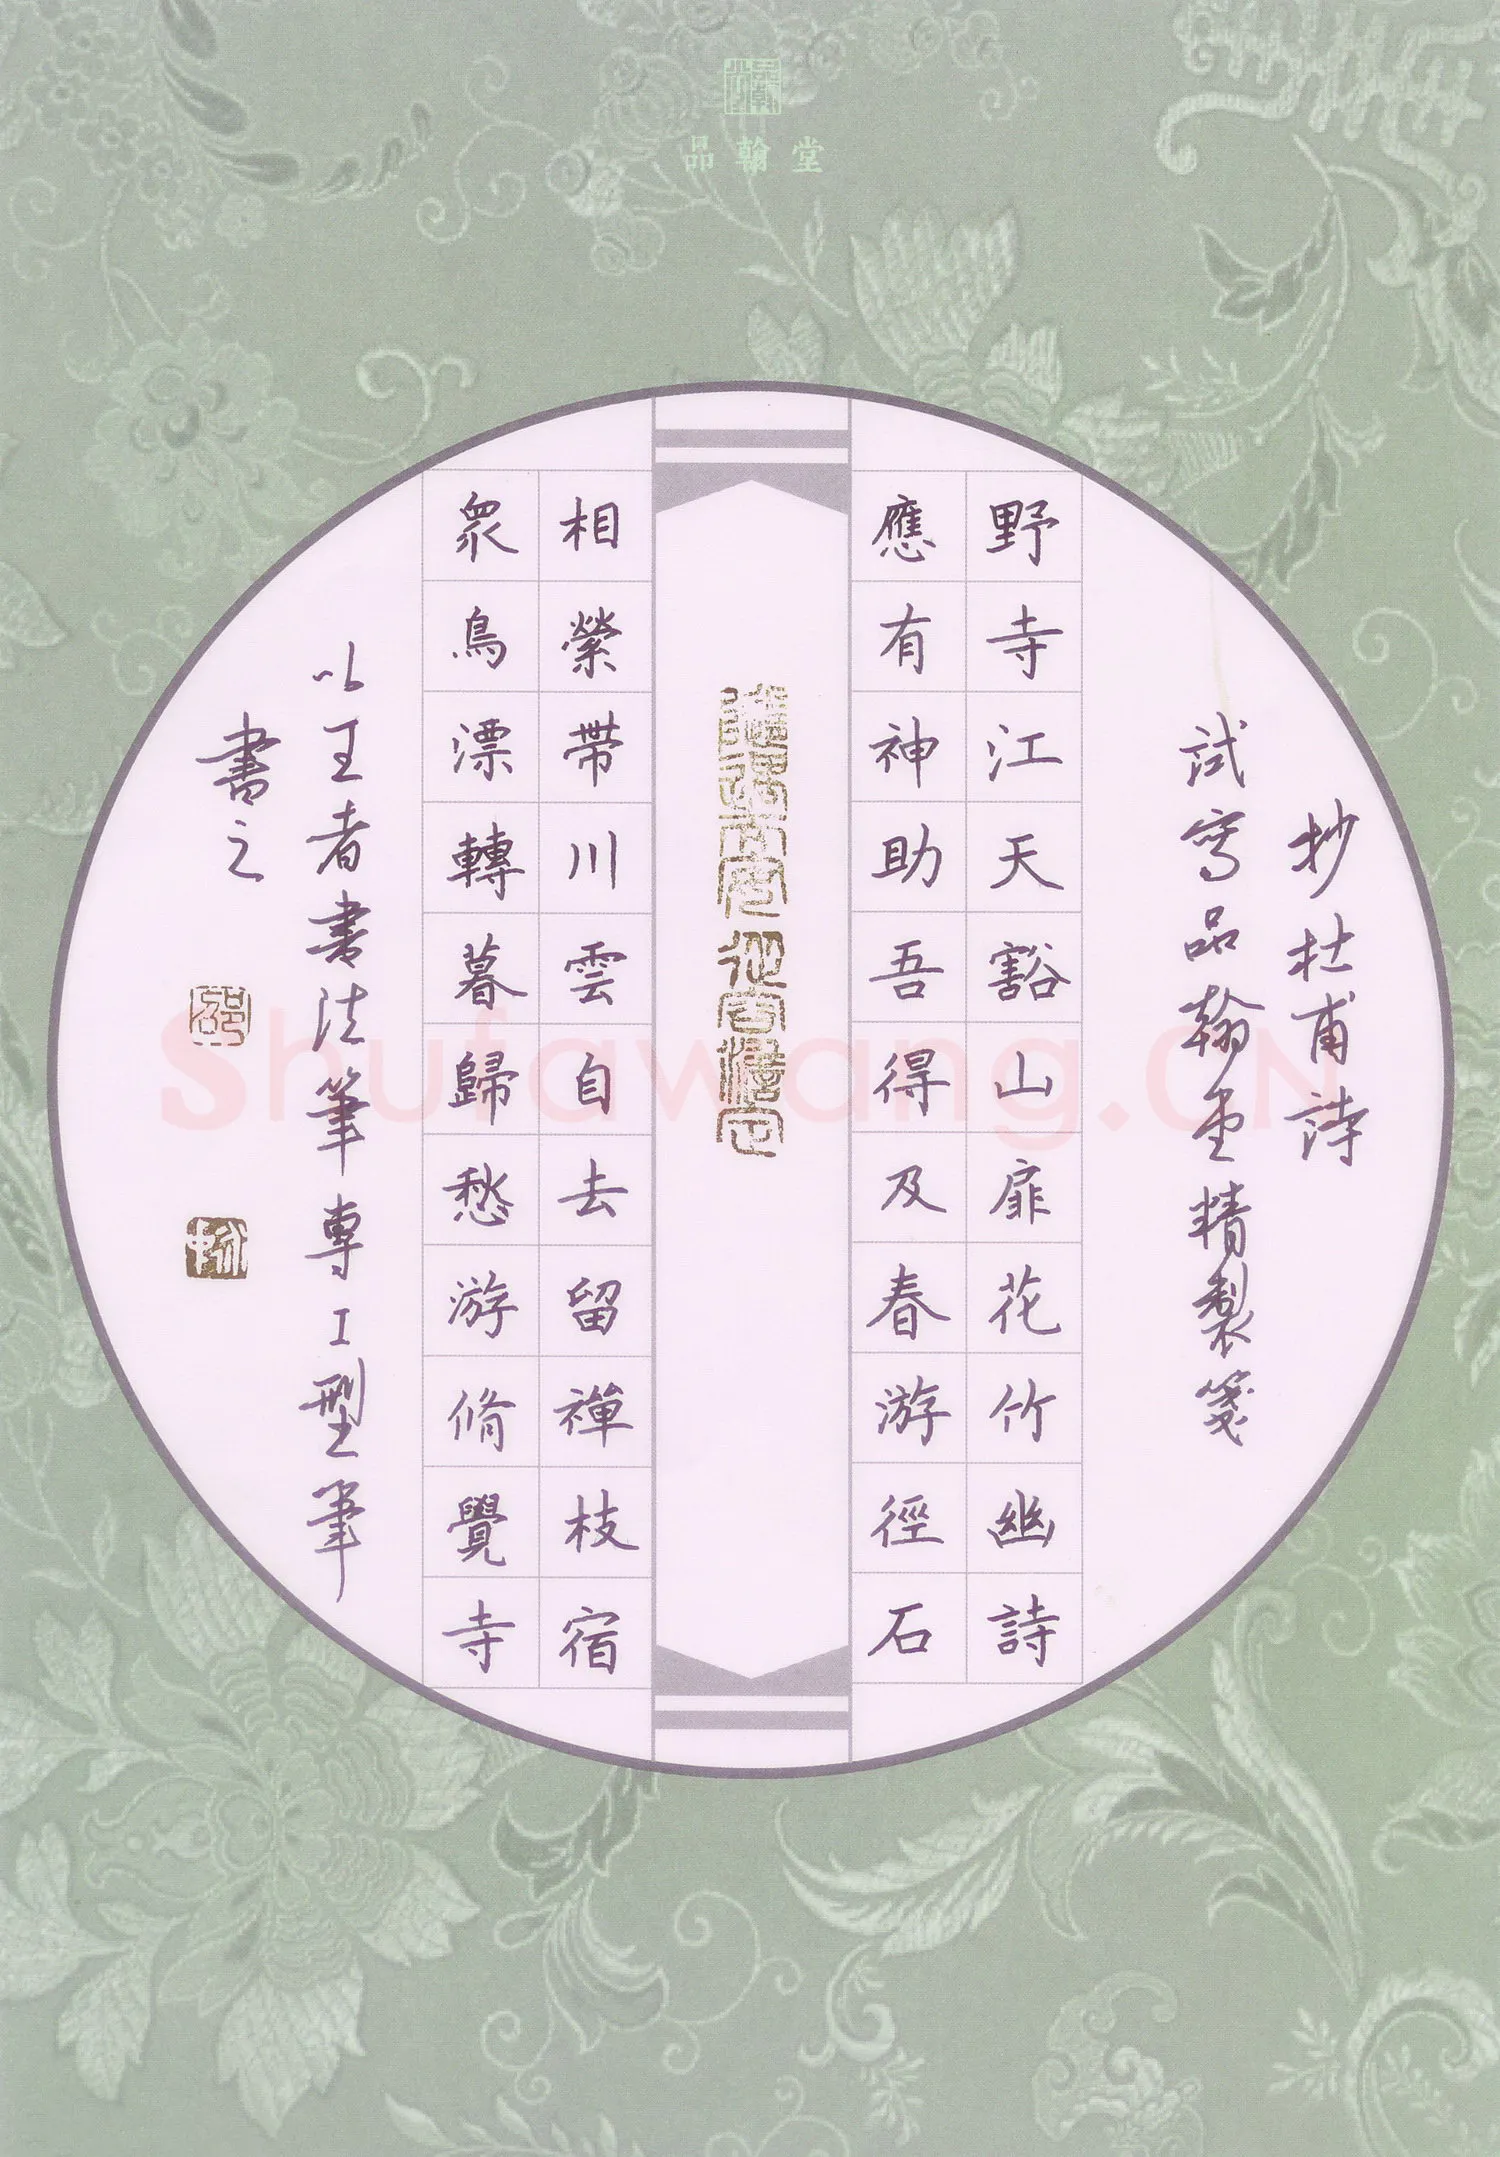 品翰堂
抄杜甫詩
試寫品翰堂精製箋
野寺江天豁山扉花竹幽詩
應有神助吾得及春游徑石
隨遇而安
相縈帶川雲自去留禪枝宿
眾鳥漂轉暮歸愁游脩覺寺
以王者書法筆專工型筆
書之
邵
Shufawang.CN